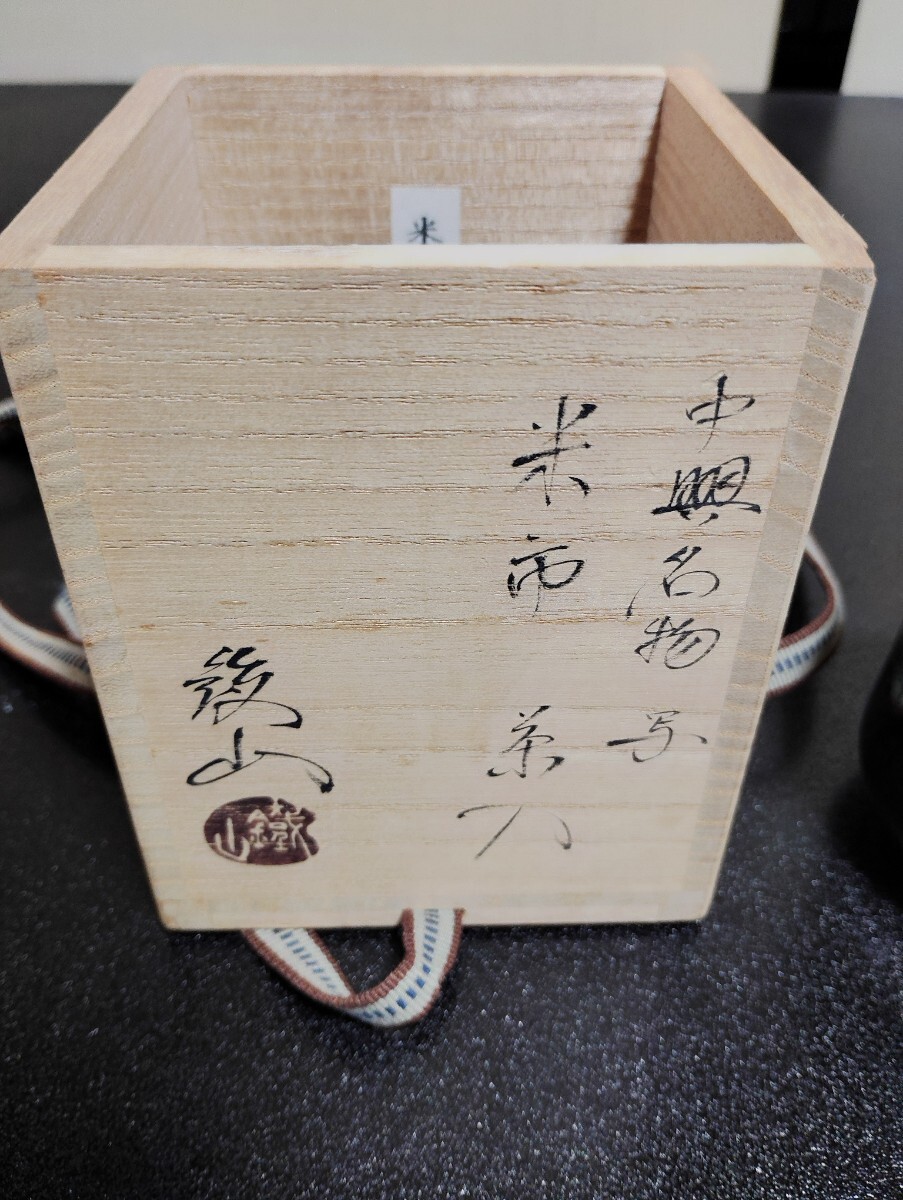 米
中興名物 写
米市 茶入
鐵山
鐵山